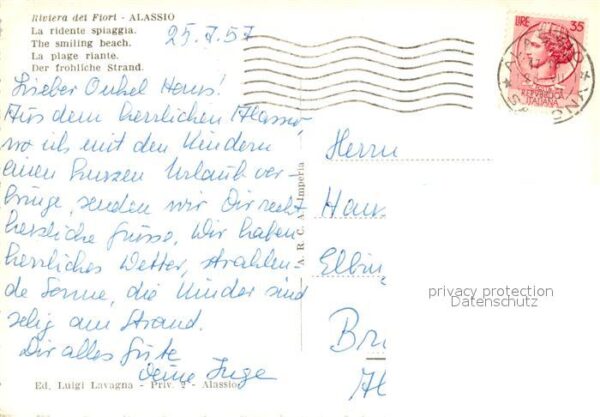 Riviera dei Fiori - ALASSIO
La ridente spiaggia.
The smiling beach.
La plage riante.
Der frohliche Strand.
25.7.57
Lieber Onkel Hans!
Aus dem herrlichen Alassio,
wo ich mit den Kindern
einen kurzen Urlaub ver-
bringe, senden wir Dir recht
herzliche Grüsse. Wir haben
herrliches Wetter, strahlen-
de Sonne, die Kinder sind
selig am Strand.
Dir alles Gute
deine Inge
Ed. Luigi Lavagna - Priv. 2 - Alassio
A. R. C. A. - Imperia
LIRE 35
REPUBBLICA
ITALIANA
Herrn
Hans
Elbin
Br
privacy protection
Datenschutz